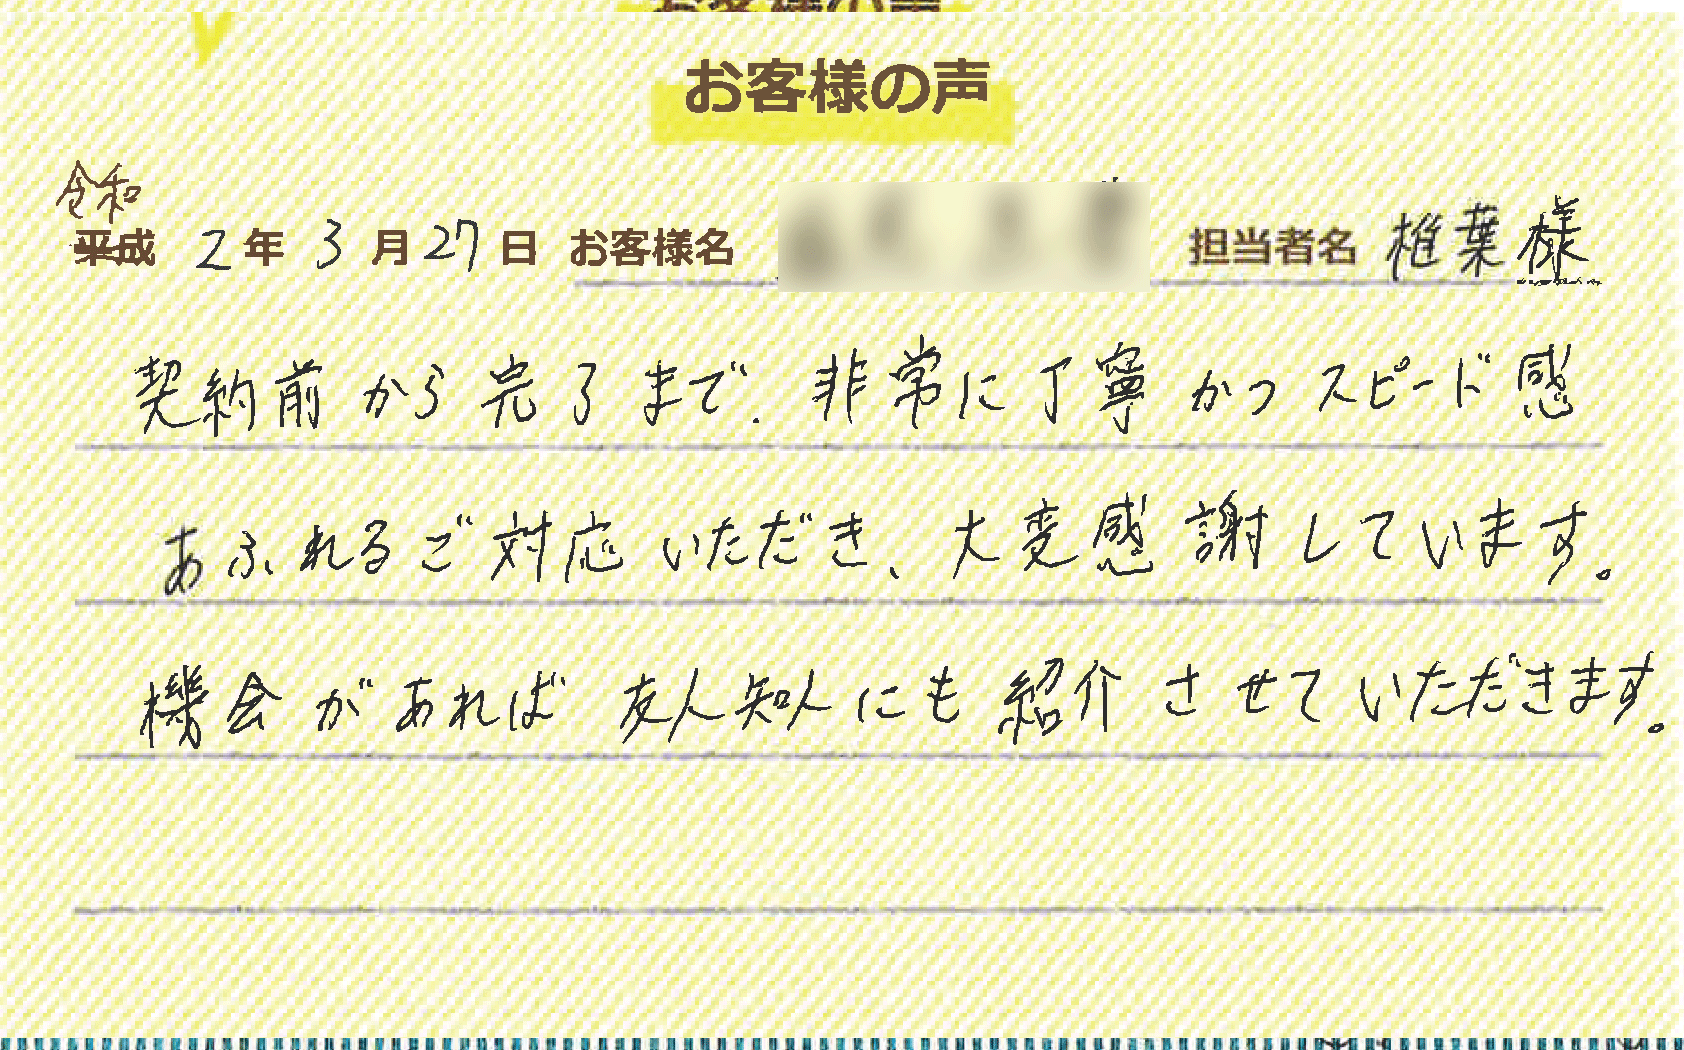 お客様の声
お客様の声
令和
平成 2年 3月27日 お客様名 担当者名 椎葉様
契約前から完了まで、非常に丁寧かつスピード感
あふれるご対応いただき、大変感謝しています。
機会があれば友人知人にも紹介させていただきます。